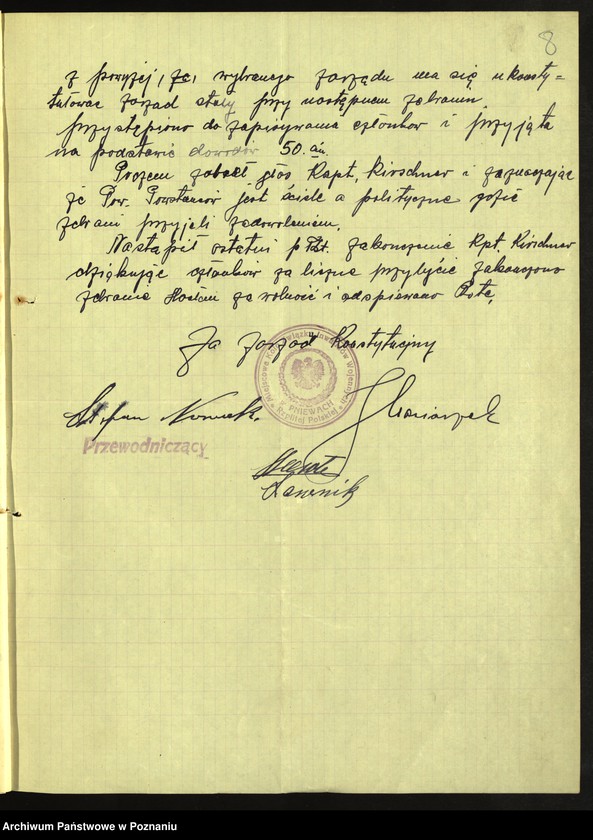 8
z powyżej, ze, wybranego zarządu ma się ukonsty=
tuować zarząd stały przy następnem zebraniu.
przystąpiono do zapisywania członków i przyjęta
na podstawie dowodów 50.
Poczem zabrał głos Kapt. Kirschner i zaznaczając
że Pow. Powstańców jest ściśle a polityczne
zebrani przyjęli zadowoleniem.
Nastąpił ostatni zakończenie Kpt. Kirschner
dziękując członków za liczne przybycie zakończono
zebranie Hasłem za wolność i odśpiewano Rotę,
Za zarząd Konstytucyjny
Związku Inwalidów Wojennych
Rzplitej Polskiej
w PNIEWACH
Stefan Nowak.
Przewodniczący
Ławnik
Archiwum Państwowe w Poznaniu